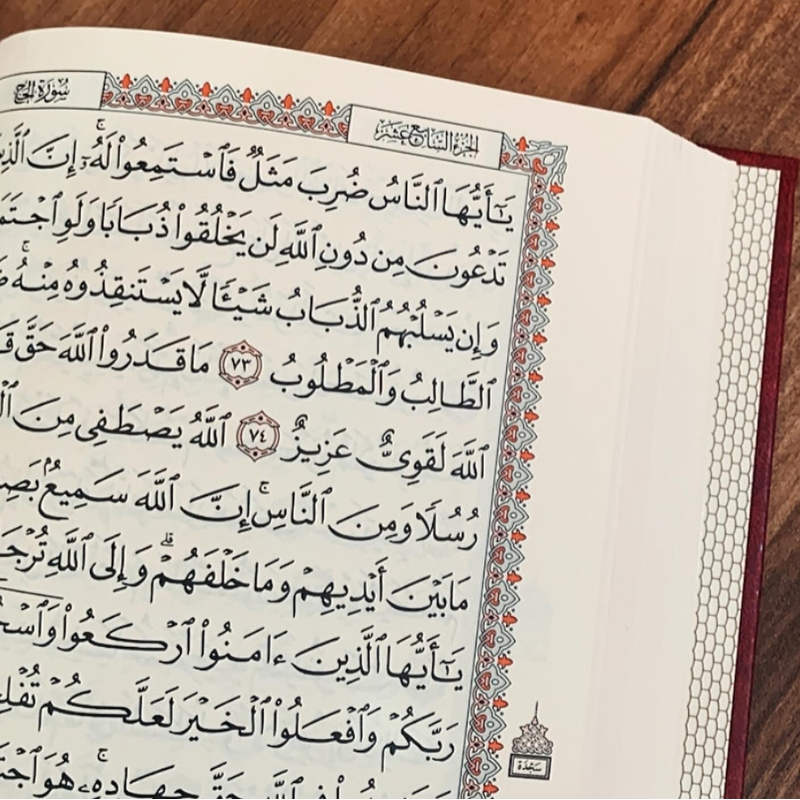 الجُزْءُ السَّابِعَ عَشَرَ سُورَةُ الحَجِّ
يَٰٓأَيُّهَا ٱلنَّاسُ ضُرِبَ مَثَلٌ فَٱسْتَمِعُوا۟ لَهُۥٓ ۚ إِنَّ
تَدْعُونَ مِن دُونِ ٱللَّهِ لَن يَخْلُقُوا۟ ذُبَابًا وَلَوِ
وَإِن يَسْلُبْهُمُ ٱلذُّبَابُ شَيْـًٔا لَّا يَسْتَنقِذُوهُ مِنْهُ ۚ
ٱلطَّالِبُ وَٱلْمَطْلُوبُ ٧٣ مَا قَدَرُوا۟ ٱللَّهَ حَقَّ
ٱللَّهَ لَقَوِىٌّ عَزِيزٌ ٧٤ ٱللَّهُ يَصْطَفِى مِنَ
رُسُلًا وَمِنَ ٱلنَّاسِ ۚ إِنَّ ٱللَّهَ سَمِيعٌۢ
مَا بَيْنَ أَيْدِيهِمْ وَمَا خَلْفَهُمْ ۗ وَإِلَى ٱللَّهِ
يَٰٓأَيُّهَا ٱلَّذِينَ ءَامَنُوا۟ ٱرْكَعُوا۟
رَبَّكُمْ وَٱفْعَلُوا۟ ٱلْخَيْرَ لَعَلَّكُمْ
سَجْدَة
ٱللَّهِ حَقَّ جِهَادِهِۦ ۚ هُوَ